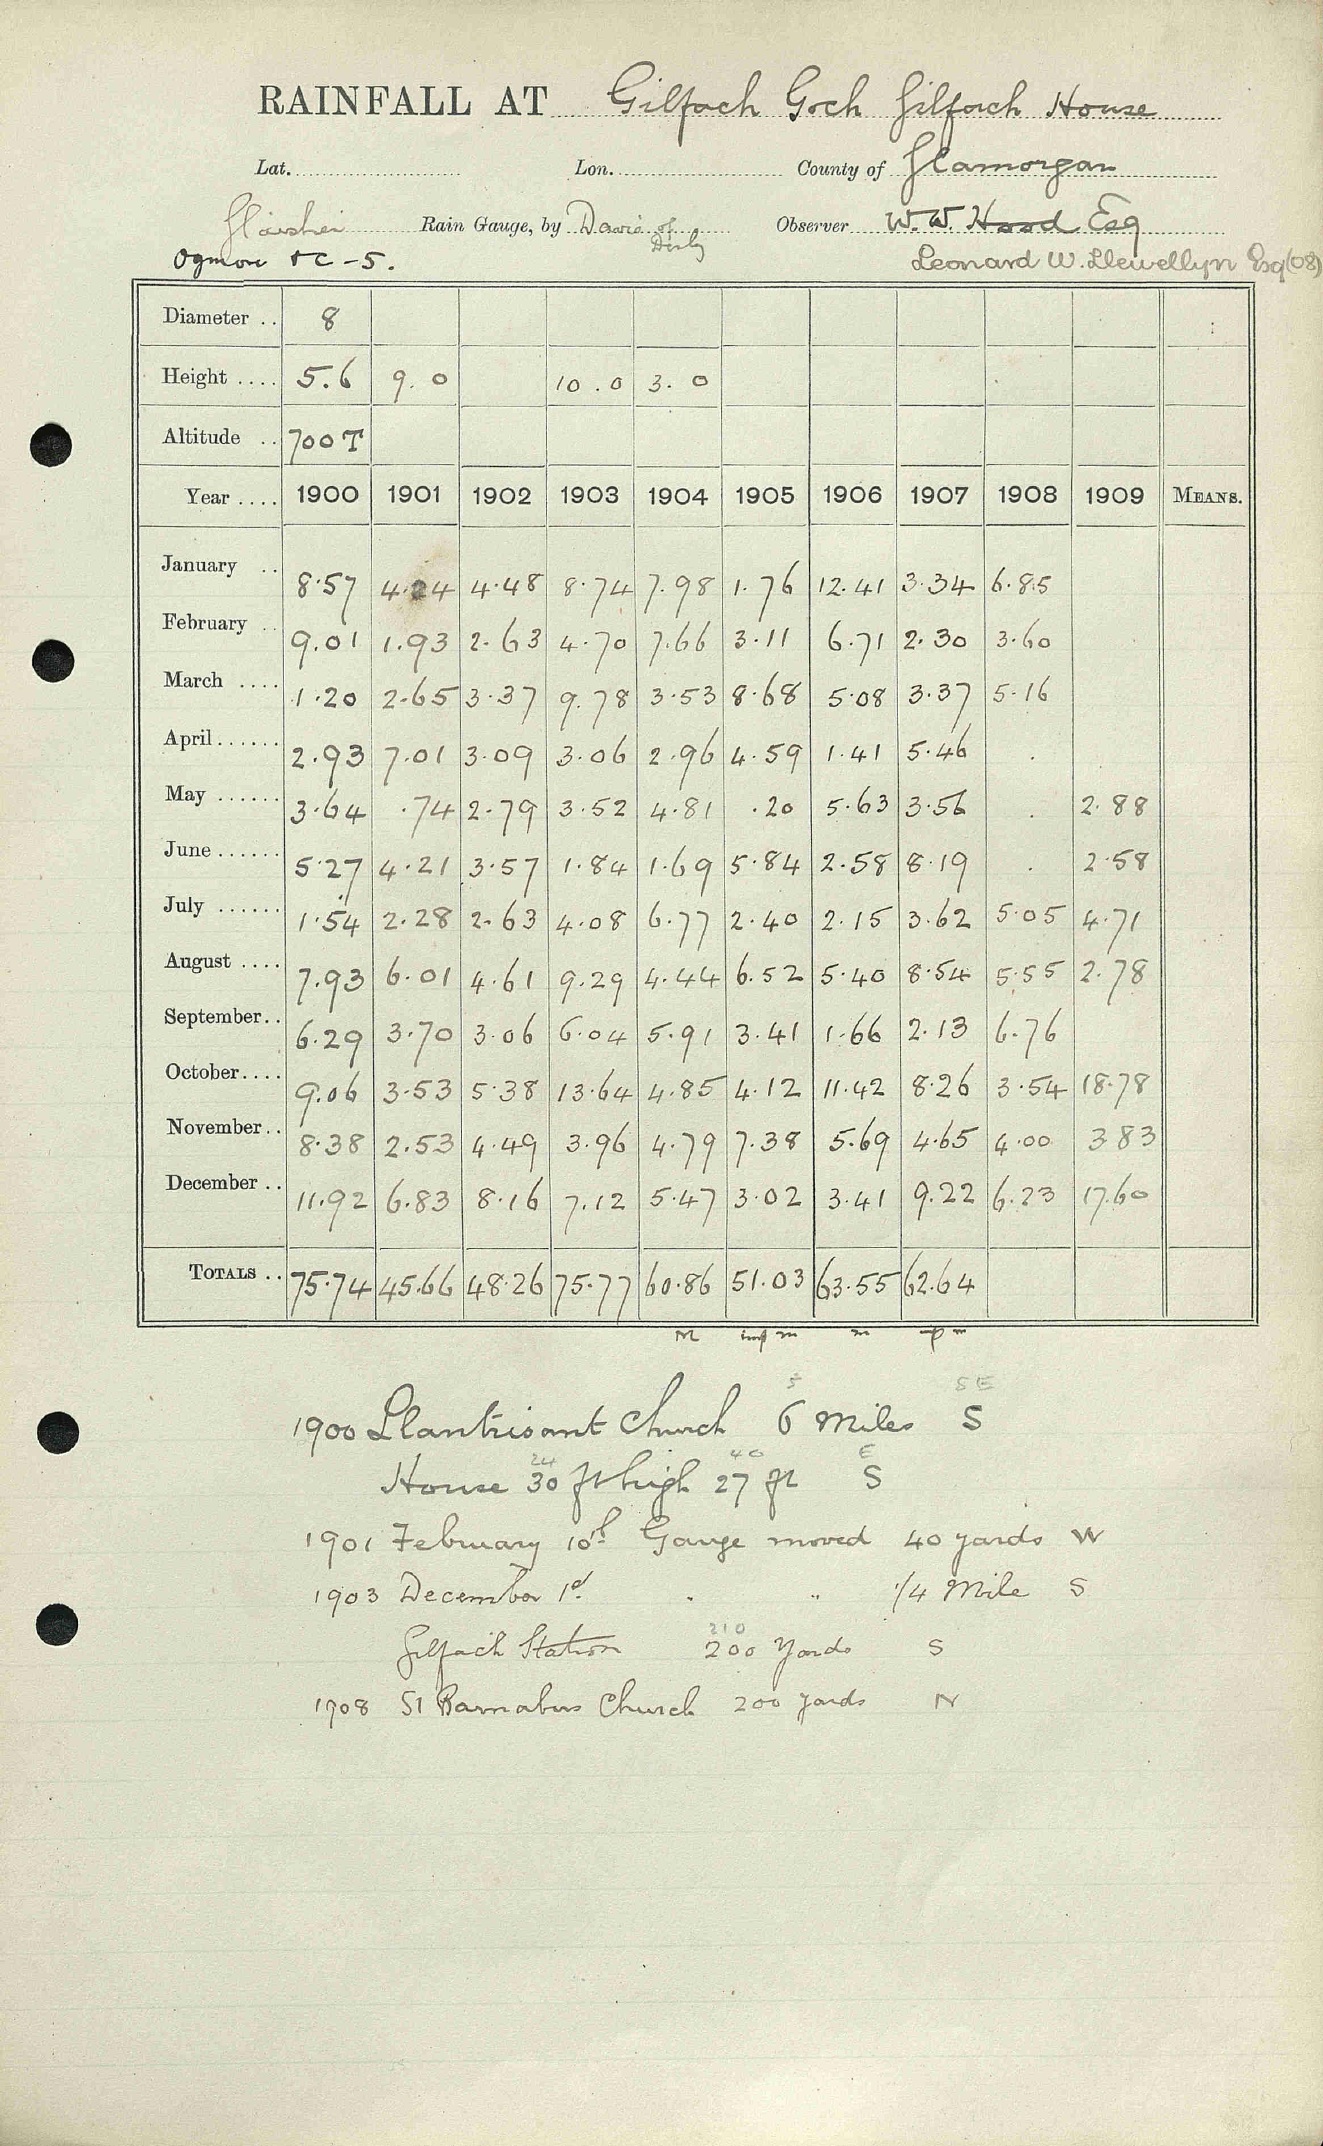 RAINFALL AT Gilfach Goch Gilfach House
Lat. Lon. County of Glamorgan
Glaisher Rain Gauge, by Davis of Derby Observer W. W. Hood Esq
Ogmore &c - 5. Leonard W. Llewellyn Esq (08)
Diameter .. 8
Height .... 5.6 9.0 10.0 3.0
Altitude .. 700 T
Year .... 1900 1901 1902 1903 1904 1905 1906 1907 1908 1909 MEANS.
January .. 8.57 4.24 4.48 8.74 7.98 1.76 12.41 3.34 6.85
February .. 9.01 1.93 2.63 4.70 7.66 3.11 6.71 2.30 3.60
March .... 1.20 2.65 3.37 9.78 3.53 8.68 5.08 3.37 5.16
April ...... 2.93 7.01 3.09 3.06 2.96 4.59 1.41 5.46 .
May ...... 3.64 .74 2.79 3.52 4.81 .20 5.63 3.56 . 2.88
June ...... 5.27 4.21 3.57 1.84 1.69 5.84 2.58 8.19 . 2.58
July ...... 1.54 2.28 2.63 4.08 6.77 2.40 2.15 3.62 5.05 4.71
August .... 7.93 6.01 4.61 9.29 4.44 6.52 5.40 8.54 5.55 2.78
September .. 6.29 3.70 3.06 6.04 5.91 3.41 1.66 2.13 6.76
October .... 9.06 3.53 5.38 13.64 4.85 4.12 11.42 8.26 3.54 18.78
November .. 8.38 2.53 4.49 3.96 4.79 7.38 5.69 4.65 4.00 3.83
December .. 11.92 6.83 8.16 7.12 5.47 3.02 3.41 9.22 6.23 17.60
TOTALS .. 75.74 45.66 48.26 75.77 60.86 51.03 63.55 62.64
M m m
5 SE
1900 Llantrisant Church 6 Miles S
24 40 E
House 30 ft high 27 ft S
1901 February 10th Gauge moved 40 yards W
1903 December 1st " " 1/4 Mile S
210
Gilfach Station 200 Yards S
1908 St Barnabus Church 200 yards N